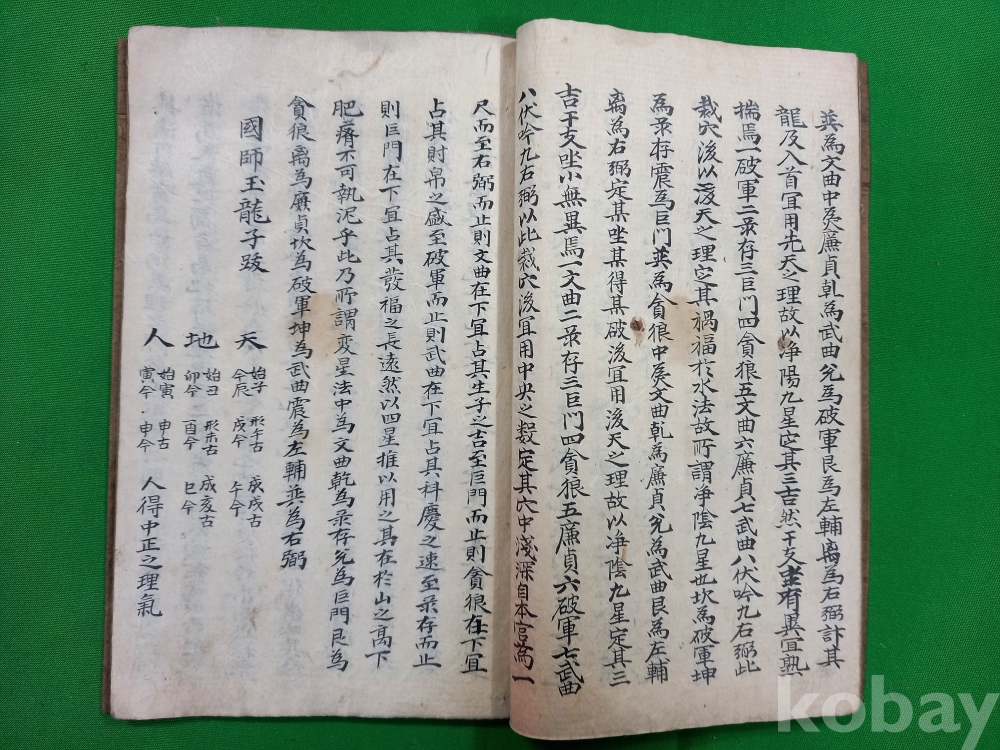 巽為文曲中爲廉貞乹為武曲兊為破軍艮爲左輔离為右弼訃其
龍及入首冝用先天之理故以净陽九星定其三吉然干支坐有異冝熟
揣焉一破軍二录存三巨門四貪狼五文曲六廉貞七武曲八伏吟九右弼此
裁穴後以後天之理定其禍福扵水法故所謂净陰九星也坎為破軍坤
為录存震為巨門巽為貪狼中爲文曲乹為廉貞兊為武曲艮為左輔
离為右弼定其坐某得某破後冝用後天之理故以净陰九星定其三
吉干支坐小無異焉一文曲二录存三巨門四貪狼五廉貞六破軍七武曲
八伏吟九右弼以此裁穴後冝用中央之数定其穴中淺深自本宮為一
尺而至右弼而止則文曲在下冝占其生子之吉至巨門而止則貪狼在下冝
占其財帛之盛至破軍而止則武曲在下冝占其科慶之速至录存而止
則巨門在下冝占其發福之長遠然以四星推以用之其在扵山之高下
肥瘠不可執泥乎此乃所謂変星法中為文曲乾為录存兊為巨門艮為
貪狼离為廉貞坎為破軍坤為武曲震為左輔巽為右弼
國師玉龍子跋
天 始子 形壬古 成戌古
今辰 戌今 午今
地 始丑 形未古 成亥古
卯今 酉今 巳今
人 始寅 申古 人得中正之理氣
寅今 申今
kobay